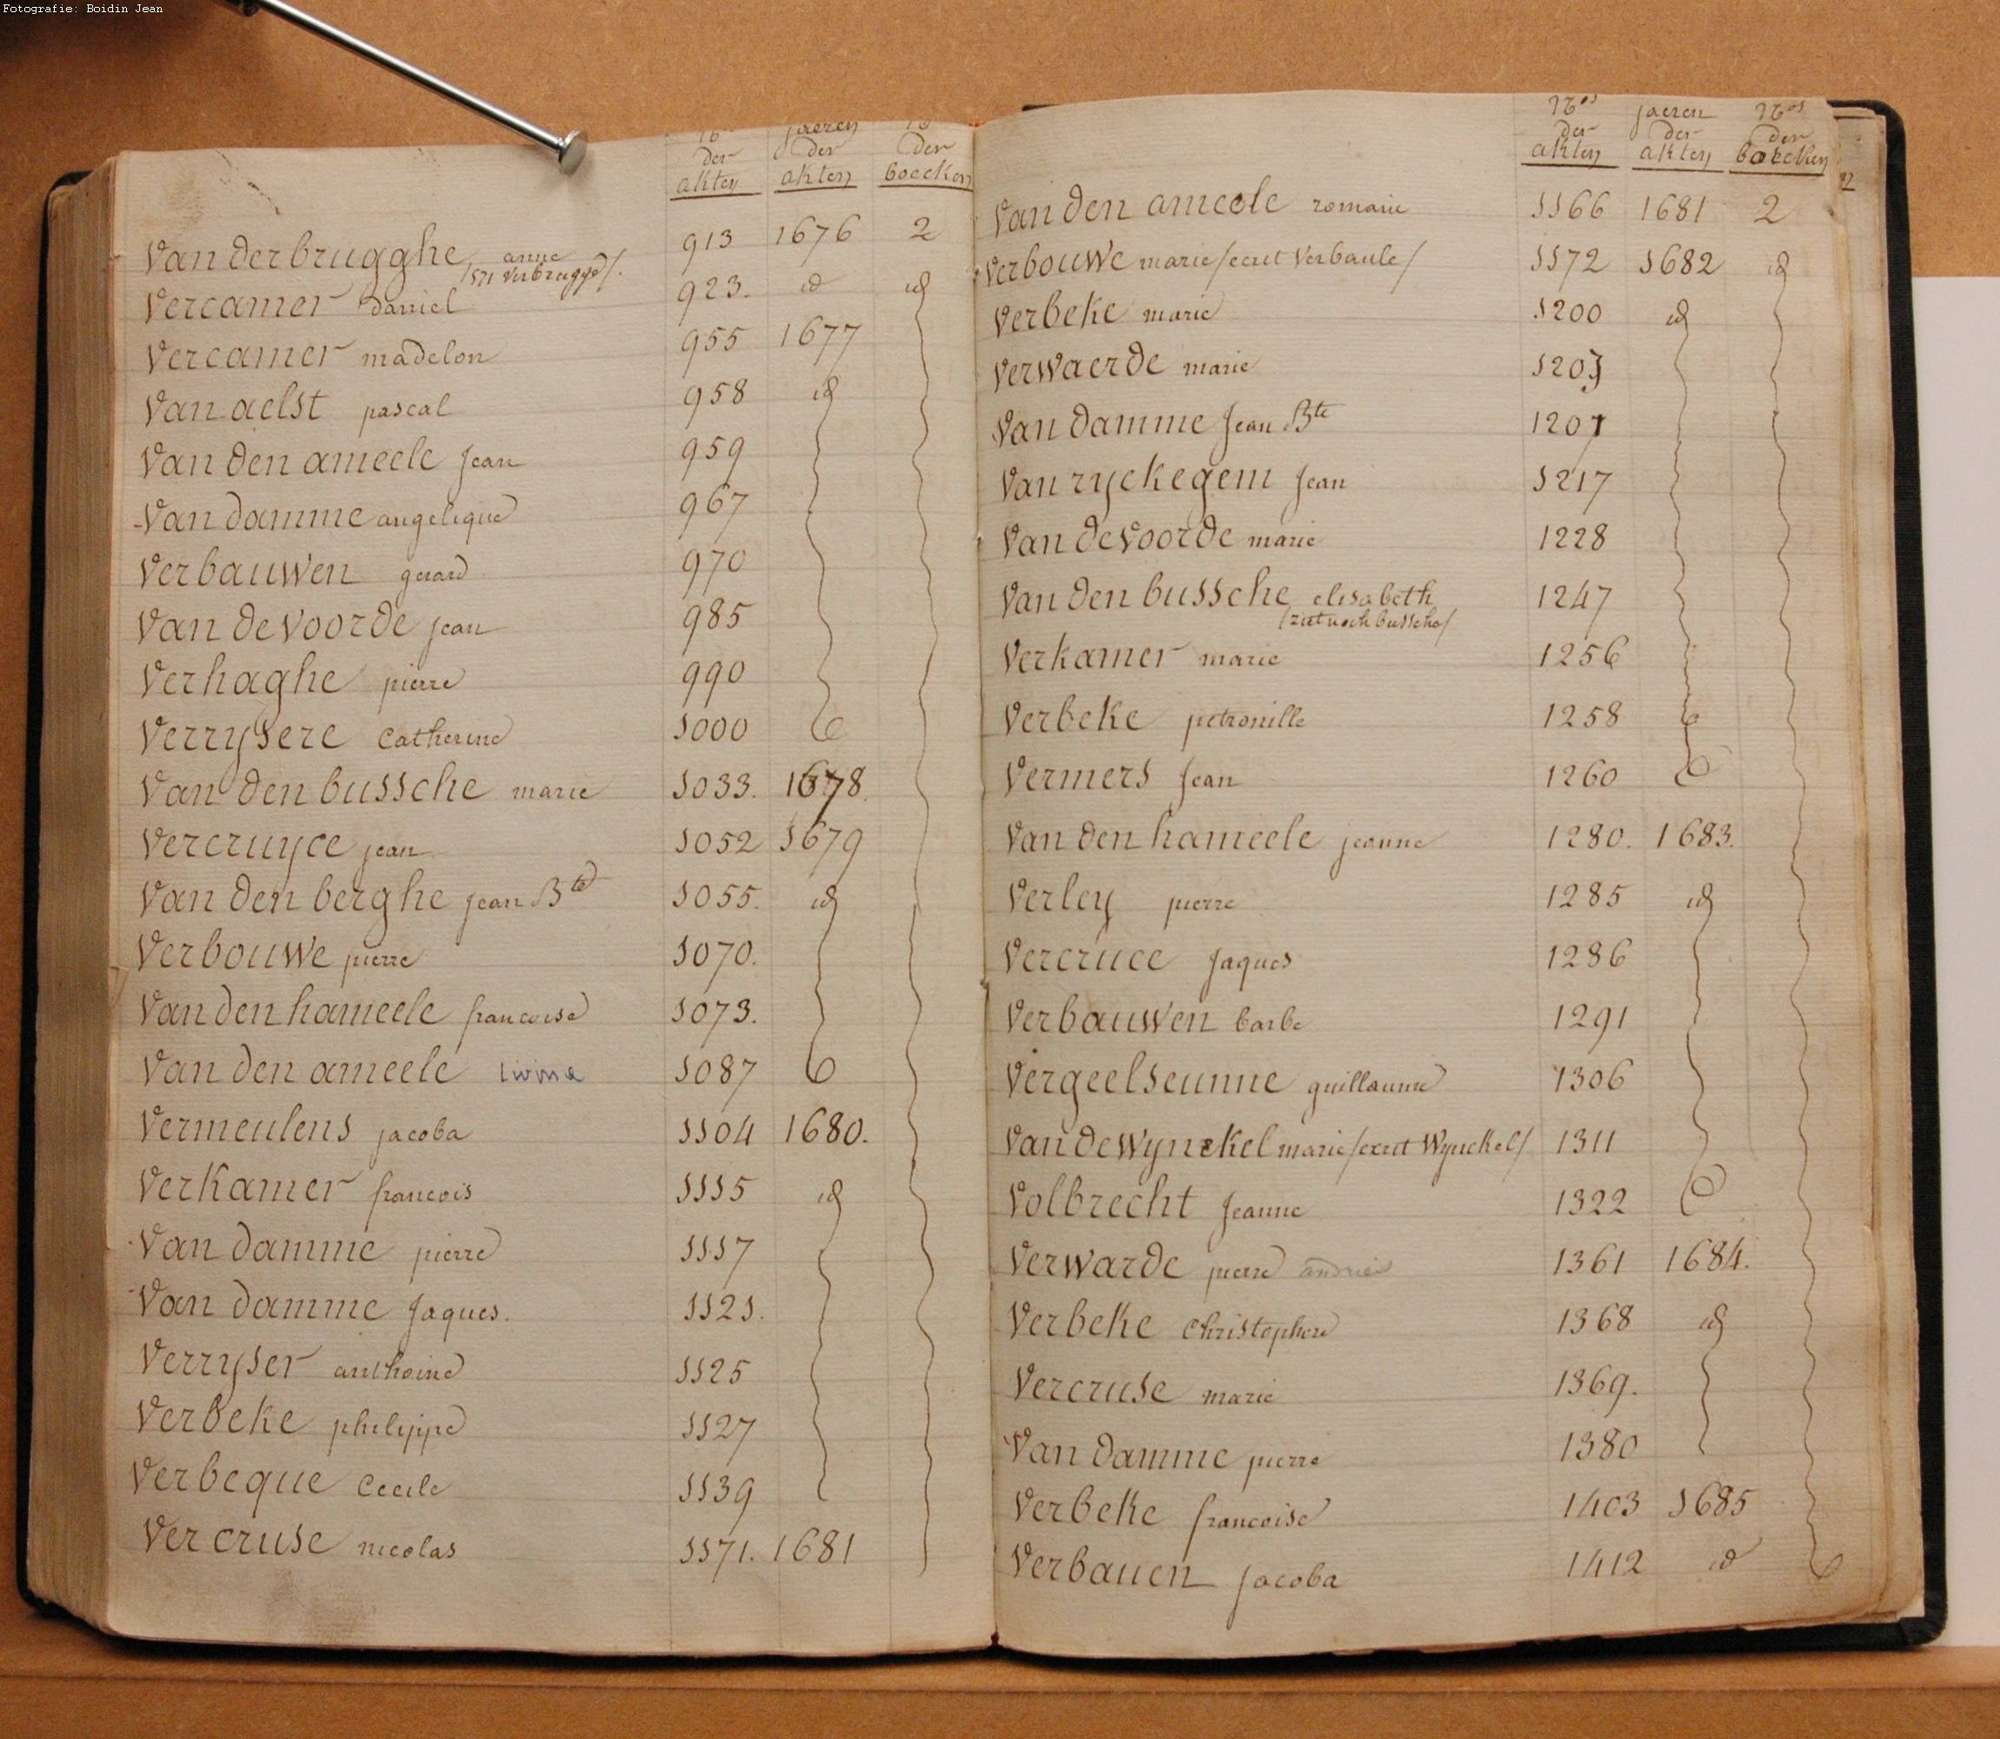 Fotografie: Boidin Jean
jaeren
der der den
akten akten boecken
Van der brugghe anne 913 1676 2
Vercamer daniel 923. id id
Vercamer madelon 955 1677
Van aelst pascal 958 id
Van den ameele Jean 959
Van damme angelique 967
Verbauwen gerard 970
Van de voorde jean 985
Verhaghe pierre 990
Verrysere Catherine 1000
Van den bussche marie 1033. 1678.
Vercruyce jean 1052 1679
Van den berghe jean Bte 1055. id
Verbouwe pierre 1070.
Van den hameele francoise 1073.
Van den ameele livina 1087
Vermeulens jacoba 1104 1680.
Verkamer francois 1115 id
Van damme pierre 1117
Van damme Jaques. 1121.
Verryser anthoine 1125
Verbeke philippe 1127
Verbeque Cecile 1139
Ver cruse nicolas 1171. 1681
Nos jaeren Nos
der der den
akten akten boecken
Van den ameele romaie 1166 1681 2
Verbouwe marie /ecrit Verbaule/ 1172 1682 id
Verbeke marie 1200 id
Verwaerde marie 1203
Van damme Jean Bte 1207
Van ryckegem Jean 1217
Van de voorde marie 1228
Van den bussche elisabeth 1247
/ziet noch bussche/
Verkamer marie 1256
Verbeke petronille 1258
Vermers Jean 1260
Van den hameele jeanne 1280. 1683.
Verley pierre 1285 id
Vercruce Jaques 1286
Verbauwen barbe 1291
Vergeelseunne guillaume 1306
Van de Wynckel marie /ecrit Wynckel/ 1311
Volbrecht Jeanne 1322
Verwarde pierre andries 1361 1684.
Verbeke Christophere 1368 id
Vercruse marie 1369.
Van damme pierre 1380
Verbeke francoise 1403 1685
Verbauen Jacoba 1412 id